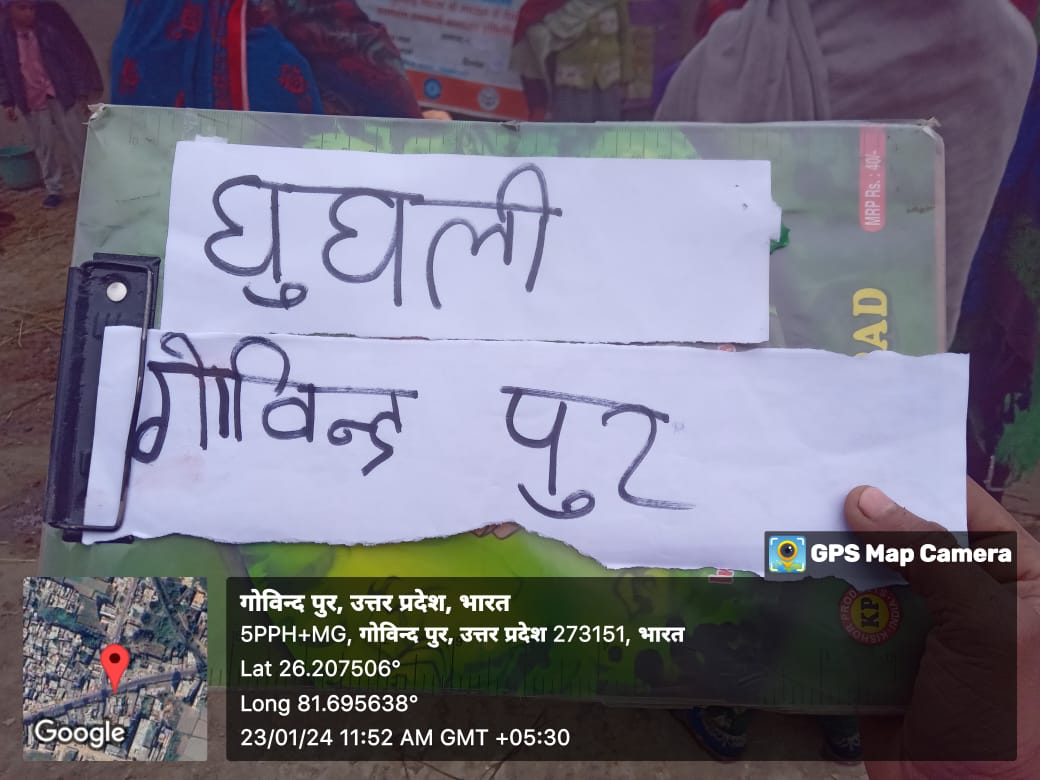 घुघली
गोविन्द पुर
MRP Rs. : 40/-
AD
KP
GPS Map Camera
गोविन्द पुर, उत्तर प्रदेश, भारत
5PPH+MG, गोविन्द पुर, उत्तर प्रदेश 273151, भारत
Lat 26.207506°
Long 81.695638°
23/01/24 11:52 AM GMT +05:30
Google